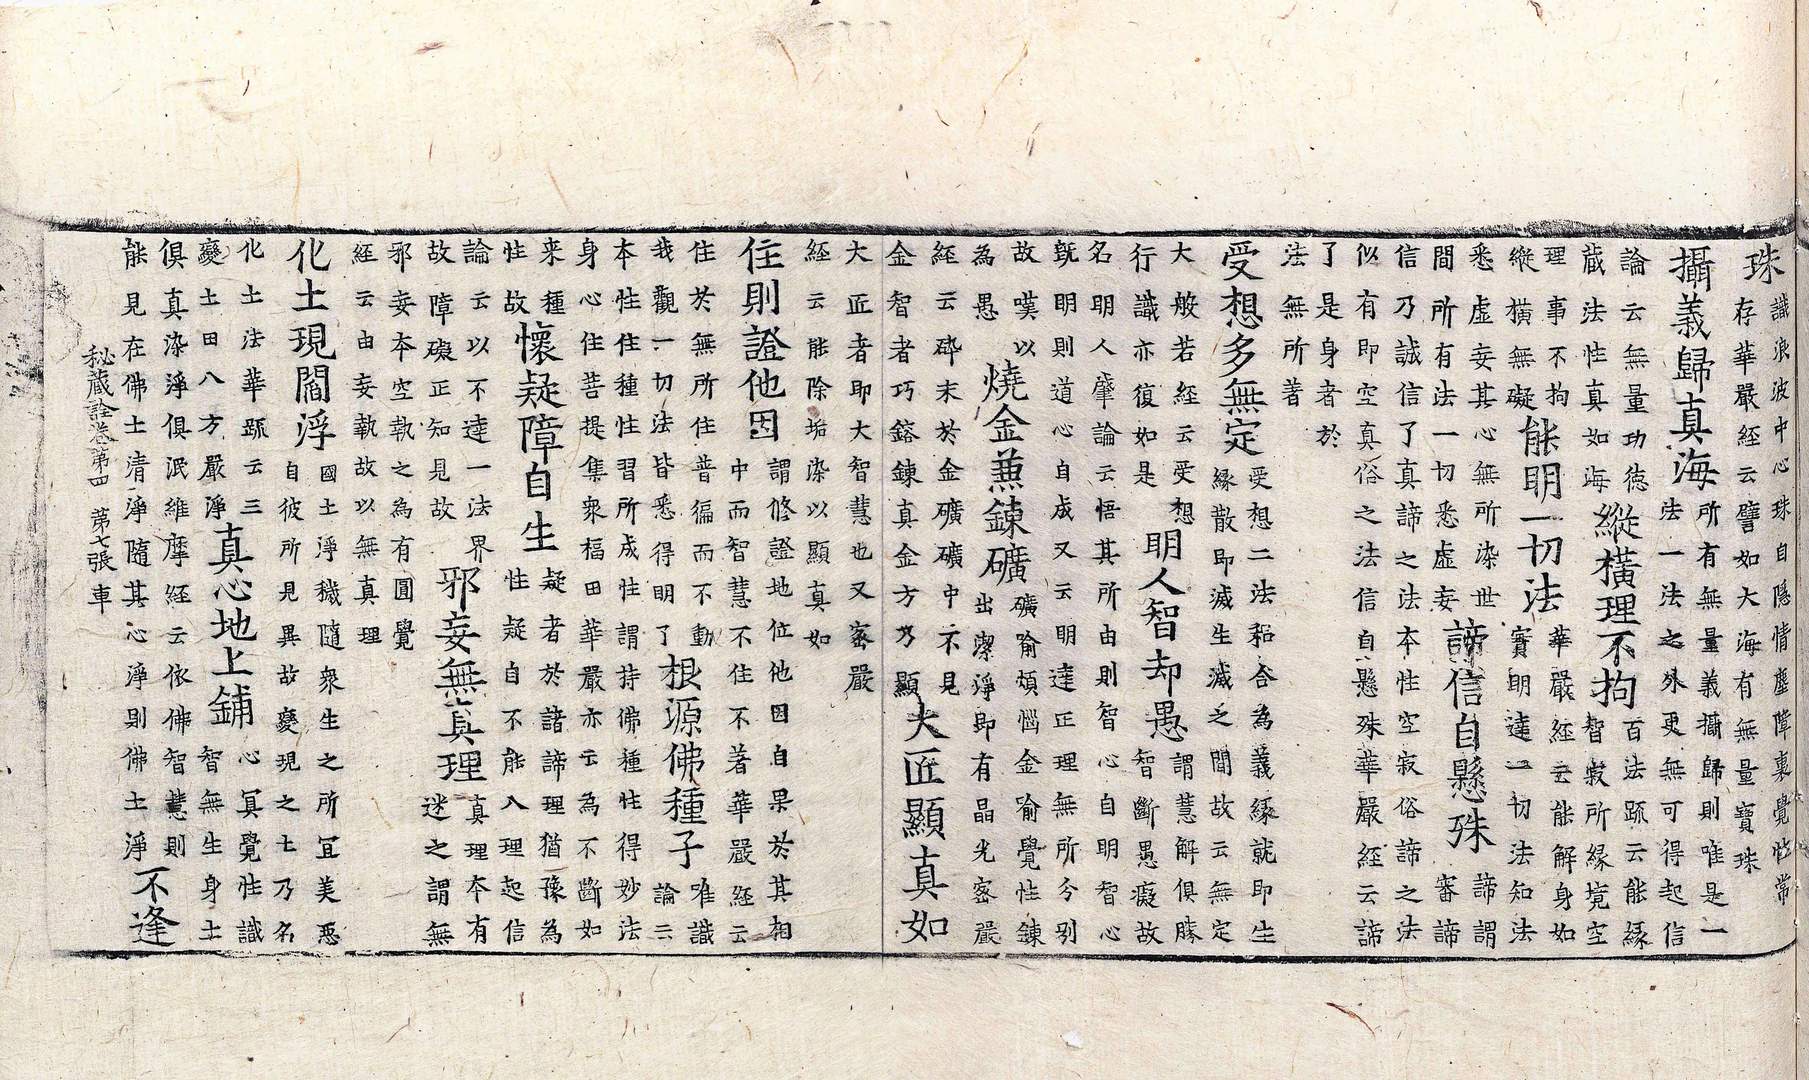 珠
識浪波中心珠自隱情塵障裏覺性常
存華嚴經云譬如大海有無量寶珠
攝義歸真海
所有無量義攝歸則唯是一
法一法之外更無可得起信
論云無量功德
藏法性真如海
縱橫理不拘
百法䟽云能緣
智寂所緣境空
理事不拘
縱橫無礙
能明一切法
華嚴經云能解身如
實明達一切法知法
悉虛妄其心無所染世
間所有法一切悉虛妄
諦信自懸殊
諦謂
審諦
信乃誠信了真諦之法本性空寂俗諦之法
似有即空真俗之法信自懸殊華嚴經云諦
了是身者於
法無所著
受想多無定
受想二法和合為義緣就即生
緣散即滅生滅之間故云無定
大般若經云受想
行識亦復如是
明人智却愚
謂慧解俱勝
智斷愚癡故
名明人肇論云悟其所由則智心自明智心
既明則道心自成又云明達正理無所今別
故嘆以
為愚
燒金兼鍊礦
礦喻煩惱金喻覺性鍊
出潔淨即有晶光密嚴
經云碎末於金礦礦中不見
金智者巧鎔鍊真金方乃顯
大匠顯真如
大匠者即大智慧也又密嚴
經云能除垢染以顯真如
住則證他因
謂修證地位他因自果於其相
中而智慧不住不著華嚴經云
住於無所住普徧而不動
我觀一切法皆悉得明了
根源佛種子
唯識
論云
本性住種性習所成性謂持佛種性得妙法
身心住菩提集衆福田華嚴亦云為不斷如
来種
性故
懷疑障自生
疑者於諸諦理猶豫為
性疑自不能入理起信
論云以不達一法界
故障礙正知見故
邪妄無真理
真理本有
迷之謂無
邪妄本空執之為有圓覺
經云由妄執故以無真理
化土現閻浮
國土淨穢隨衆生之所宜美惡
自彼所見異故變現之土乃名
化土法華䟽云三
變土田八方嚴淨
真心地上鋪
心冥覺性識
智無生身土
俱真染淨俱泯維摩經云依佛智慧則
能見在佛土清淨隨其心淨則佛土淨
不逢
秘藏詮卷第四 第七張 車